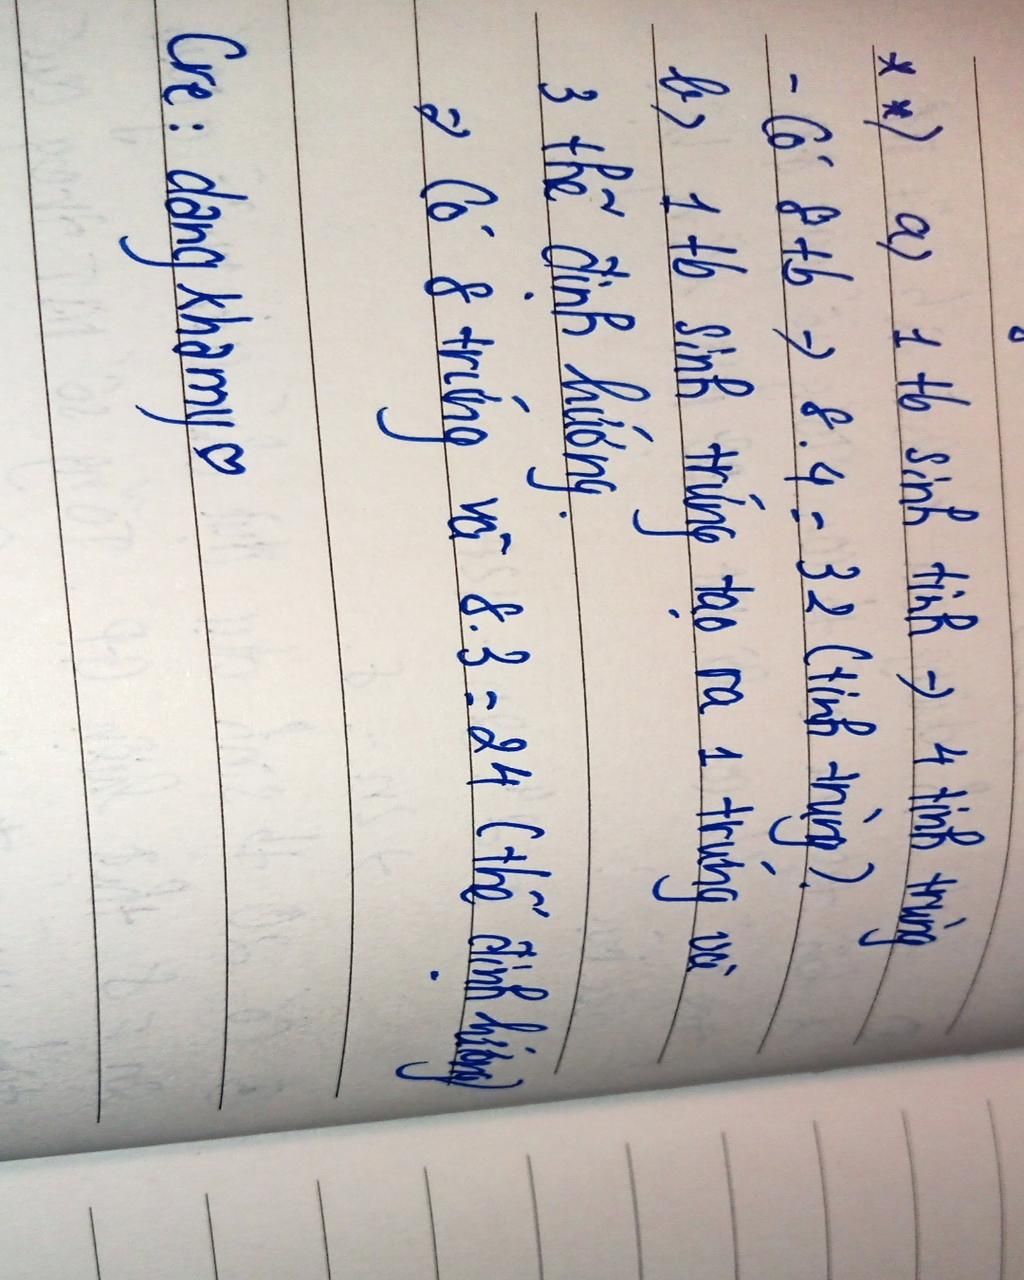 **) a) 1 tb sinh tinh → 4 tinh trùng
- Có 8 tb → 8.4 = 32 (tinh trùng).
b) 1 tb sinh trứng tạo ra 1 trứng và
3 thể định hướng.
=> Có 8 trứng và 8.3 = 24 (thể định hướng)
Cre: dangkhamy♡